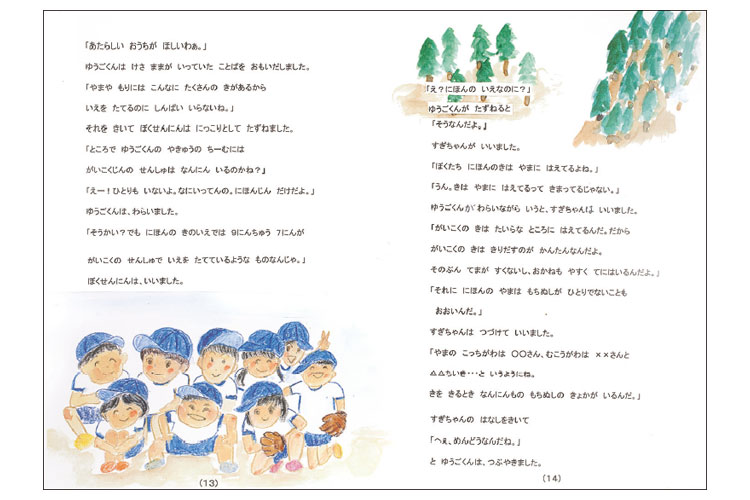 「あたらしい おうちが ほしいわぁ。」
ゆうごくんは けさ ままが いっていた ことばを おもいだしました。
「やまや もりには こんなに たくさんの きがあるから
いえを たてるのに しんぱい いらないね。」
それを きいて ぼくせんにんは にっこりとして たずねました。
「ところで ゆうごくんの やきゅうの ちーむには
がいこくじんの せんしゅは なんにん いるのかね？」
「えー！ひとりも いないよ。なにいってんの。にほんじん だけだよ。」
ゆうごくんは、わらいました。
「そうかい？でも にほんの きのいえでは 9にんちゅう 7にんが
がいこくの せんしゅで いえを たてているような ものなんじゃ。」
ぼくせんにんは、いいました。
（13）
「え？にほんの いえなのに？」
ゆうごくんが たずねると
「そうなんだよ。」
すぎちゃんが いいました。
「ぼくたち にほんのきは やまに はえてるよね。」
「うん。きは やまに はえてるって きまってるじゃない。」
ゆうごくんが わらいながら いうと、すぎちゃんは いいました。
「がいこくの きは たいらな ところに はえてるんだ。だから
がいこくの きは きりだすのが かんたんなんだよ。
そのぶん てまが すくないし、おかねも やすく てにはいるんだよ。」
「それに にほんの やまは もちぬしが ひとりでないことも
おおいんだ。」
すぎちゃんは つづけて いいました。
「やまの こっちがわは 〇〇さん、むこうがわは ××さんと
△△ちいき・・・と いうようにね。
きを きるとき なんにんもの もちぬしの きょかが いるんだ。」
すぎちゃんの はなしをきいて
「へぇ、めんどうなんだね。」
と ゆうごくんは、つぶやきました。
（14）